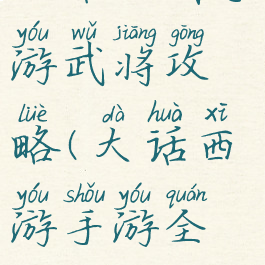 yóu wǔ jiāng gōng
游武将攻
lüè dà huà xī
略(大话西
yóu shǒu yóu quán
游手游全